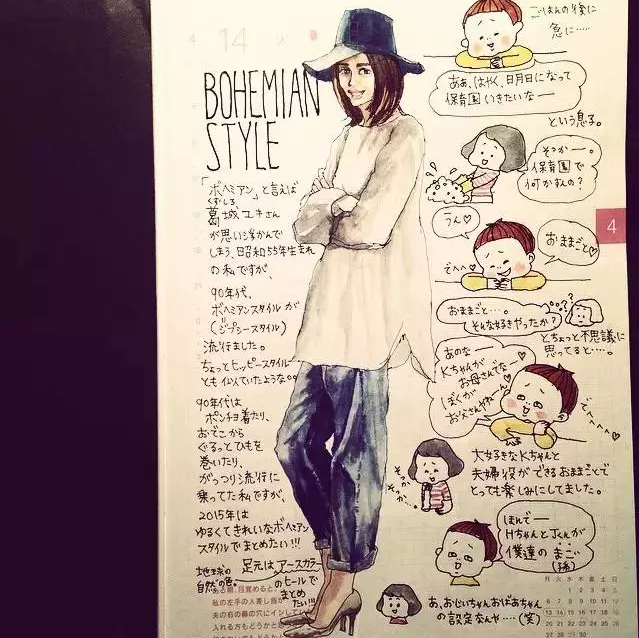 4
14
火
BOHEMIAN
STYLE
「ボヘミアン」と言えば
葛城ユキさん
が思い浮かんで
しまう、昭和55年生まれ
の私ですが、
90年代、
ボヘミアンスタイルが
(ジプシースタイル)
流行ました。
ちょっとヒッピースタイル
とも似いていたような。。
90年代は
ポンチョ着たり、
おでこから
ぐるっとひもを
巻いたり、
がっつり流行に
乗ってた私ですが、
2015年は
ゆるくてきれいなボヘミアン
スタイルでまとめたい!!!
足元はアースカラー
のヒールで
まとめ
たい!!!
地球の
自然の色。
ごはんの後に
急に……
あぁ、はやく、日月日になって
保育園いきたいなー
という息子。
そっかー。
保育園で
何かすんの?
うん♡
おままごと♡
でへへ♡
おままごと…。
そんな好きやったか?
とちょっと不思議に
思ってると…。
あのなー
Kちゃんが
お母さんでなー
ぼくが
お父さんやねーん♡
でへへへへ♡
4
大好きなKちゃんと
夫婦役ができるおままごとで
とっても楽しみにしてました。
そっか、
そっか…。
ほんでー
HちゃんとJくんが
僕達のまご
(孫)
あ、おじいちゃんおばあちゃん
の設定なんや…(笑)
る朝、目覚めると、
私の左手の人差し指が
夫の右の鼻の穴にインしてい
入れる方もどうかと
月 火 水 木 金 土 日
1 2 3 4 5
6 7 8 9 10 11 12
13 14 15 16 17 18 19
20 21